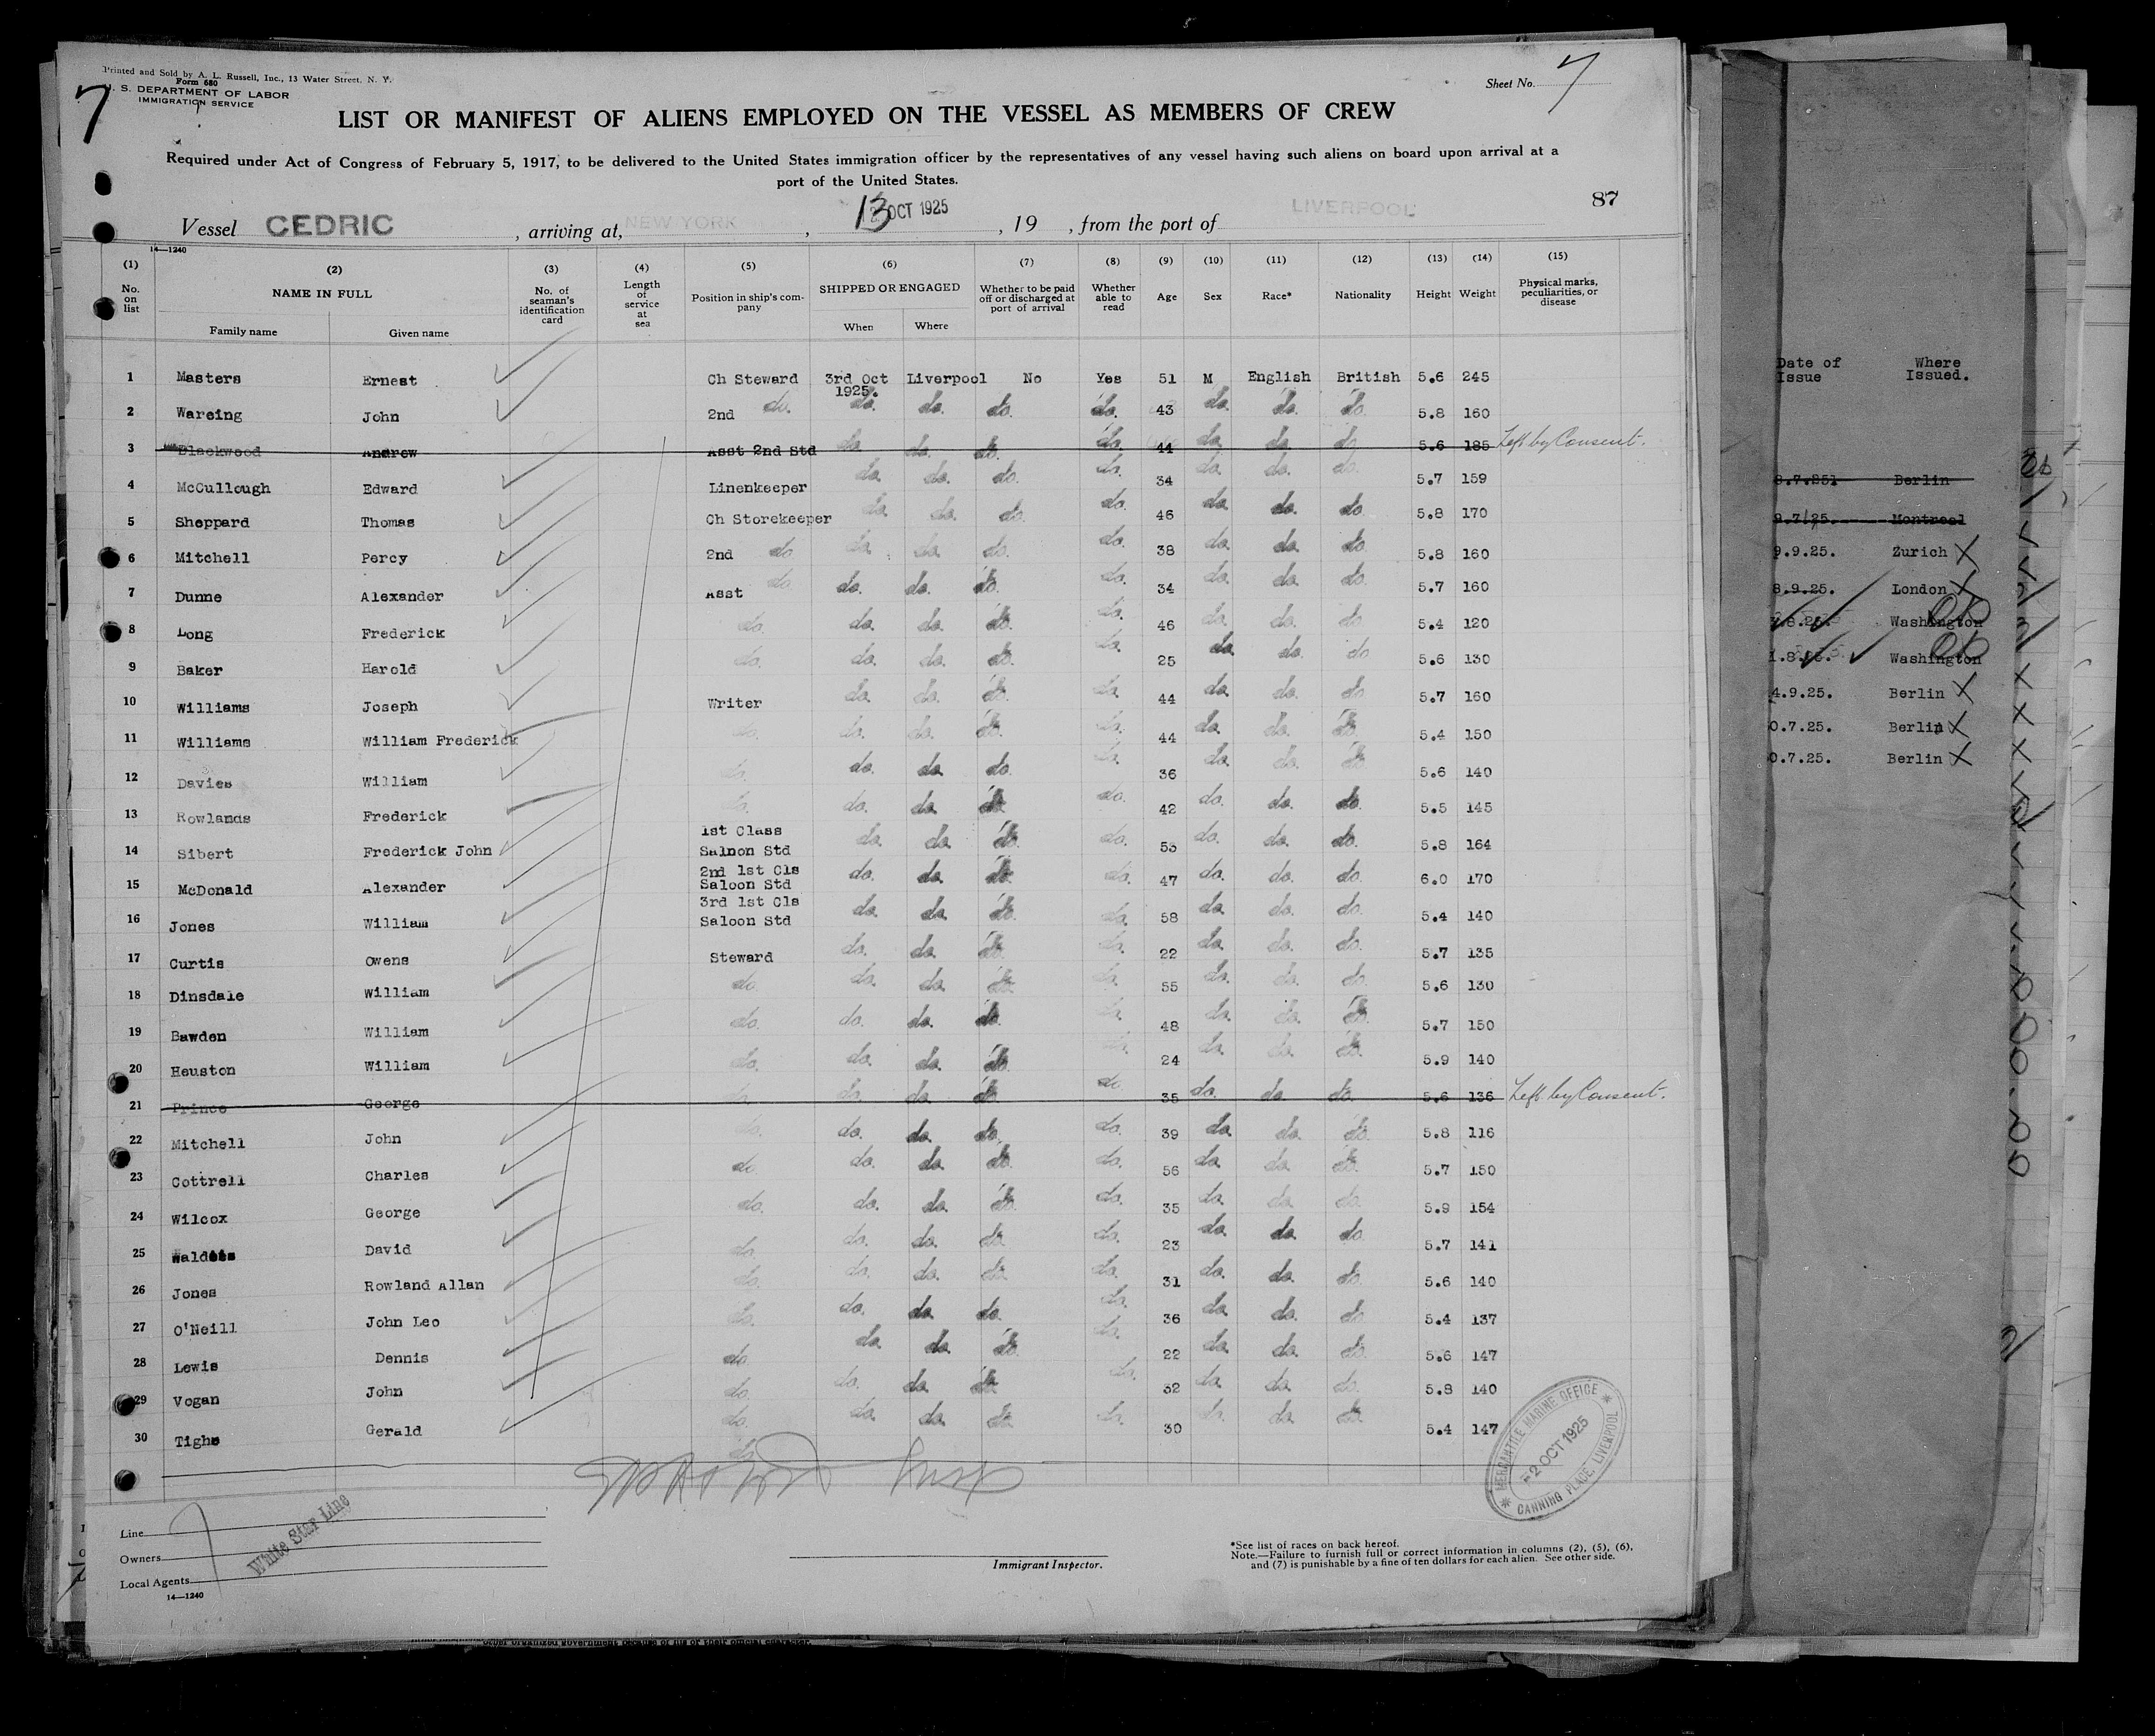 Printed and Sold by A. L. Russell, Inc., 13 Water Street, N. Y.
Form 680
U. S. DEPARTMENT OF LABOR
IMMIGRATION SERVICE
7
Sheet No. 7
LIST OR MANIFEST OF ALIENS EMPLOYED ON THE VESSEL AS MEMBERS OF CREW
Required under Act of Congress of February 5, 1917, to be delivered to the United States immigration officer by the representatives of any vessel having such aliens on board upon arrival at a
port of the United States.
87
Vessel CEDRIC, arriving at, NEW YORK, 13 OCT 1925, 19 , from the port of LIVERPOOL
14—1240
(1) (2) (3) (4) (5) (6) (7) (8) (9) (10) (11) (12) (13) (14) (15)
No. on list NAME IN FULL Family name Given name No. of seaman's identification card Length of service at sea Position in ship's company SHIPPED OR ENGAGED When Where Whether to be paid off or discharged at port of arrival Whether able to read Age Sex Race* Nationality Height Weight Physical marks, peculiarities, or disease
1 Masters Ernest Ch Steward 3rd Oct 1925. Liverpool No Yes 51 M English British 5.6 245
2 Wareing John 2nd do. do. do. do. do. 43 do. do. do. 5.8 160
3 Blackwood Andrew Asst 2nd Std do. do. do. do. 44 do. do. do 5.6 185 Left by Consent.
4 McCullough Edward Linenkeeper do. do. do. do. 34 do. do. do. 5.7 159
5 Sheppard Thomas Ch Storekeeper do. do. do. do. 46 do. do. do 5.8 170
6 Mitchell Percy 2nd do do. do. do. do. 38 do. do. do. 5.8 160
7 Dunne Alexander Asst do do. do. do. do. 34 do. do. do. 5.7 160
8 Long Frederick do. do. do. do. do. 46 do. do. do 5.4 120
9 Baker Harold do. do. do. do. do. 25 do. do. do 5.6 130
10 Williams Joseph Writer do. do. do. do. 44 do. do. do 5.7 160
11 Williams William Frederick do. do. do. do. do. 44 do. do. do. 5.4 150
12 Davies William do. do. do. do. do. 36 do. do. do. 5.6 140
13 Rowlands Frederick do. do. do. do. do. 42 do. do. do. 5.5 145
14 Sibert Frederick John 1st Class Saloon Std do. do. do. do. 55 do. do. do. 5.8 164
15 McDonald Alexander 2nd 1st Cls Saloon Std do. do. do. do. 47 do. do. do. 6.0 170
16 Jones William 3rd 1st Cls Saloon Std do. do. do. do. 58 do. do. do. 5.4 140
17 Curtis Owens Steward do. do. do. do. 22 do. do. do. 5.7 135
18 Dinsdale William do. do. do. do. do. 55 do. do. do. 5.6 130
19 Bawden William do. do. do. do. do. 48 do. do. do. 5.7 150
20 Heuston William do. do. do. do. do. 24 do. do. do. 5.9 140
21 Prince George do. do. do. do. do 35 do. do. do. 5.6 136 Left by Consent.
22 Mitchell John do. do. do. do. do. 39 do. do. do. 5.8 116
23 Cottrell Charles do. do. do. do. do. 56 do. do. do. 5.7 150
24 Wilcox George do. do. do. do. do. 35 do. do. do. 5.9 154
25 David do. do. do. do. do. 23 do. do. do 5.7 141
26 Jones Rowland Allan do. do. do. do. do. 31 do. do. do. 5.6 140
27 O'Neill John Leo do. do. do. do. do. 36 do. do. do 5.4 137
28 Lewis Dennis do. do. do. do. do. 22 do. do. do. 5.6 147
29 Vogan John do. do. do. do. do. 32 do. do. do. 5.8 140
30 Tighe Gerald do. do. do. do. do. 30 do. do. do. 5.4 147
do.
MERCANTILE MARINE OFFICE
2 OCT 1925
CANNING PLACE, LIVERPOOL
Line
Owners
Local Agents
White Star Line
14—1240
Immigrant Inspector.
*See list of races on back hereof.
Note.—Failure to furnish full or correct information in columns (2), (5), (6),
and (7) is punishable by a fine of ten dollars for each alien. See other side.
Date of Issue Where Issued.
8.7.251 Berlin
9.7/25. Montreal
9.9.25. Zurich X
8.9.25. London X
Washington
Washington
4.9.25. Berlin X
0.7.25. Berlin X
0.7.25. Berlin X